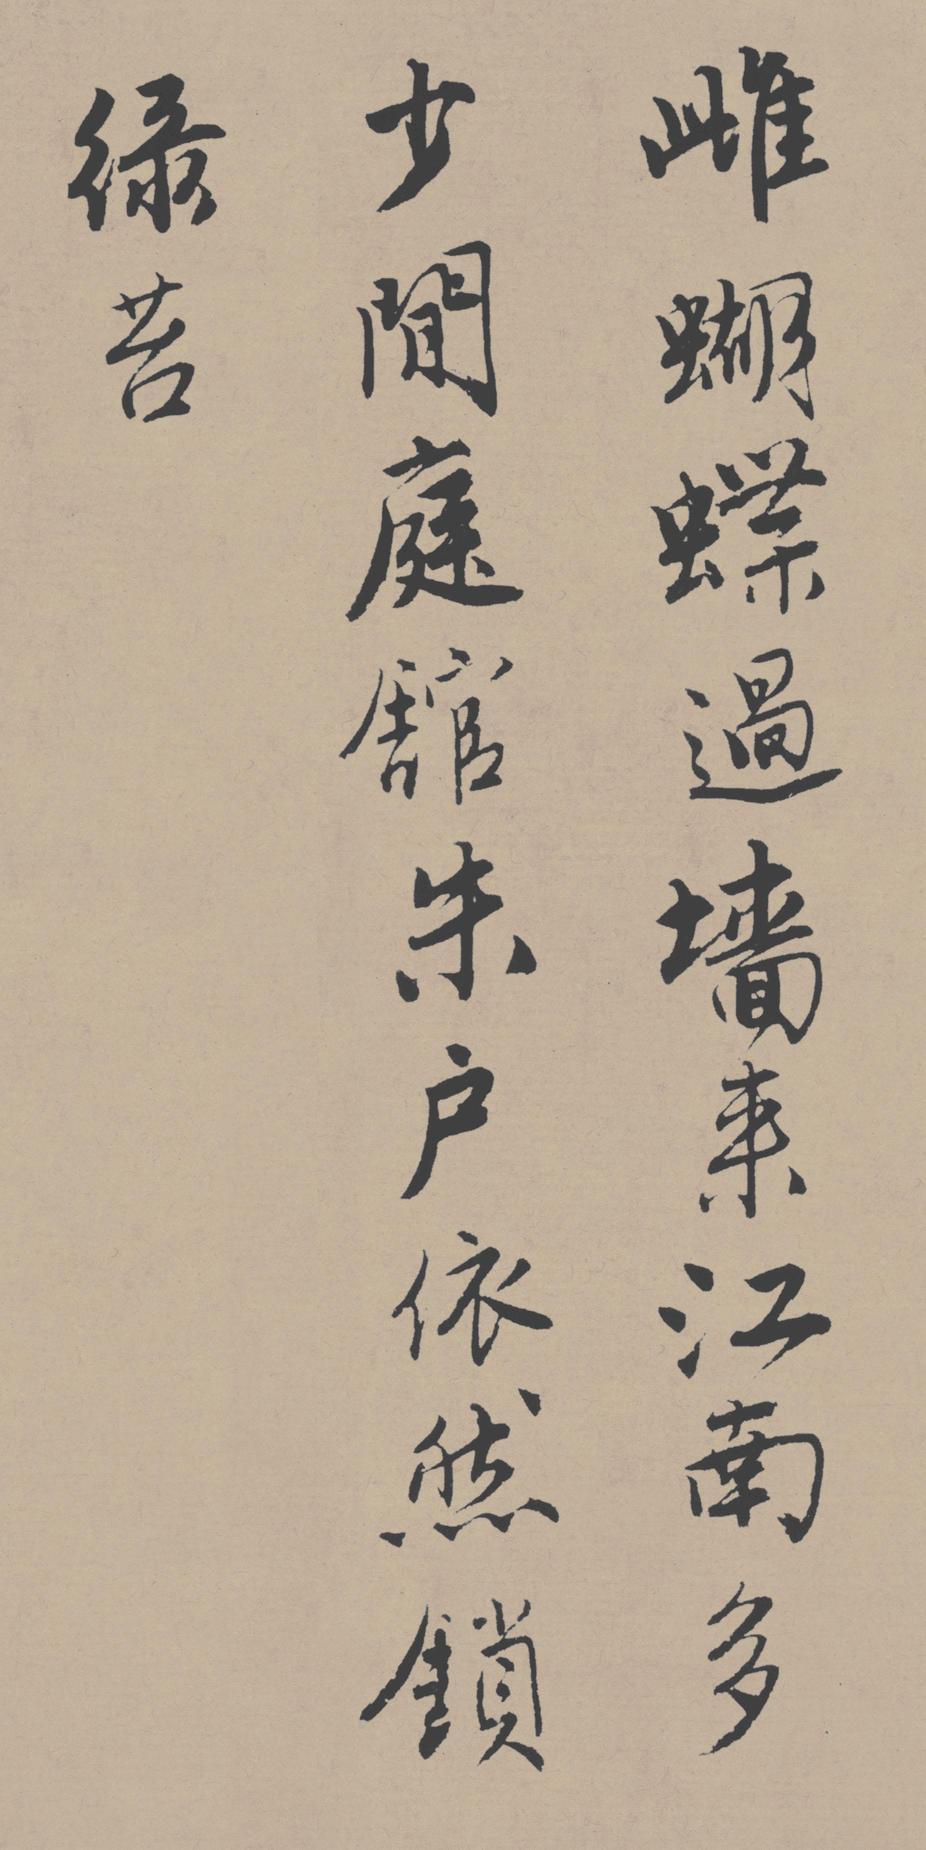 雌蝴蝶過墻来江南多
少閒庭舘朱户依然鎖
緑苔